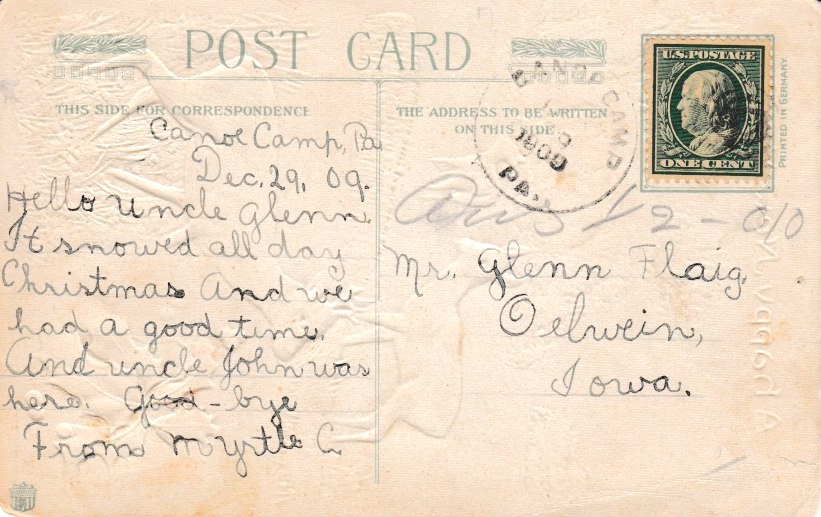 POST CARD
THIS SIDE FOR CORRESPONDENCE
THE ADDRESS TO BE WRITTEN
ON THIS SIDE
U.S. POSTAGE
ONE CENT
PRINTED IN GERMANY.
CAMP
1909
PA.
Canoe Camp, Pa
Dec. 29, 09.
Hello uncle Glenn
It snowed all day
Christmas And we
had a good time.
And uncle John was
here. Good-bye
From Myrtle C
Ans 1/2-010
Mr. Glenn Flaig,
Oelwein,
Iowa.